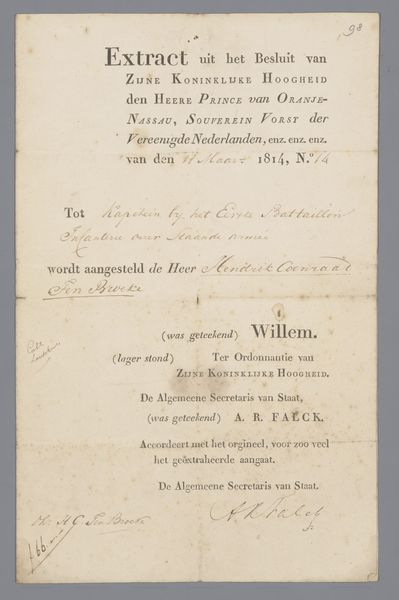 98
Extract uit het Besluit van
Zijne Koninklijke Hoogheid
den Heere Prince van Oranje-
Nassau, Souverein Vorst der
Vereenigde Nederlanden, enz. enz. enz.
van den 11 Maart 1814, N.º 14
Tot Kapitein by het Eerste Battaillon
Infanterie der Staande Armée
wordt aangesteld de Heer Hendrik Coenraad
Ten Broeke
(was geteekend) Willem.
(lager stond) Ter Ordonnantie van
Zijne Koninklijke Hoogheid.
De Algemeene Secretaris van Staat,
(was geteekend) A. R. FALCK.
Accordeert met het orgineel, voor zoo veel
het geëxtraheerde aangaat.
De Algemeene Secretaris van Staat.
A R Falck
H. C. Ten Broeke
166.